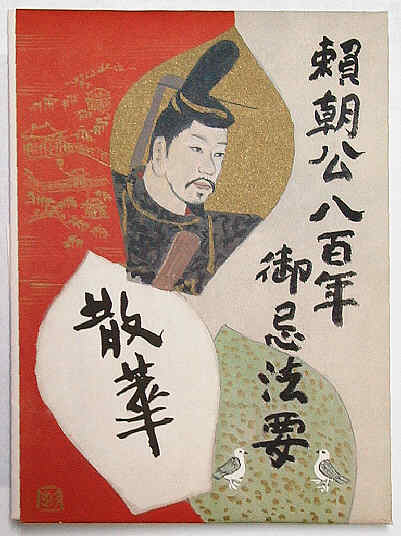 頼朝公八百年
御忌法要
散華